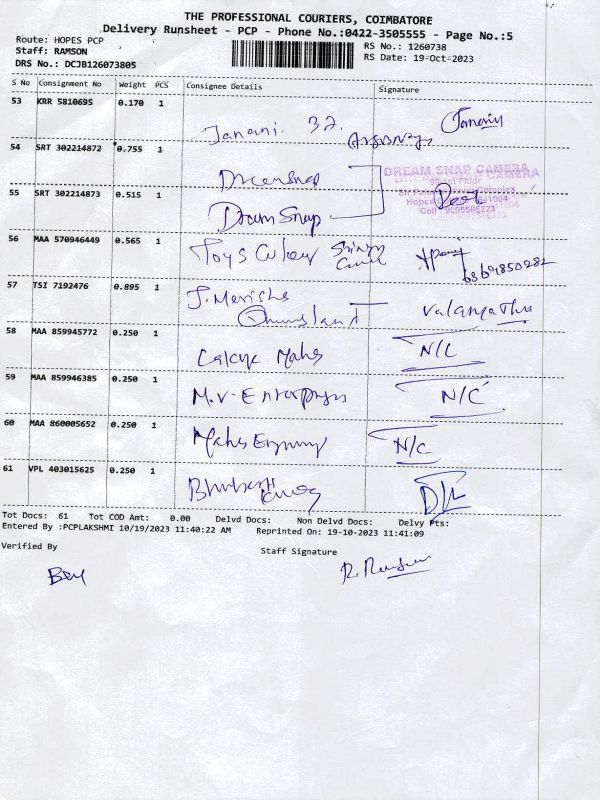 THE PROFESSIONAL COURIERS, COIMBATORE
Delivery Runsheet - PCP - Phone No.:0422-3505555 - Page No.:5
Route: HOPES PCP
RS No.: 1260738
Staff: RAMSON
RS Date: 19-Oct-2023
DRS No.: DCJB126073805
S No Consignment No Weight PCS Consignee Details Signature
53 KRR 5810695 0.170 1
Janani. 32.
54 SRT 302214872 0.755 1
Dreamsnap
DREAM SNAP CAMERA
55 SRT 302214873 0.515 1
Dream Snap
Cell : 9095586223
56 MAA 570946449 0.565 1
Toys
57 TSI 7192476 0.895 1
J.
58 MAA 859945772 0.250 1
N/C
59 MAA 859946385 0.250 1
M.V- Enterprises N/C
60 MAA 860005652 0.250 1
N/C
61 VPL 403015625 0.250 1
D/L
Tot Docs: 61 Tot COD Amt: 0.00 Delvd Docs: Non Delvd Docs: Delvy Pts:
Entered By :PCPLAKSHMI 10/19/2023 11:40:22 AM Reprinted On: 19-10-2023 11:41:09
Verified By
Staff Signature